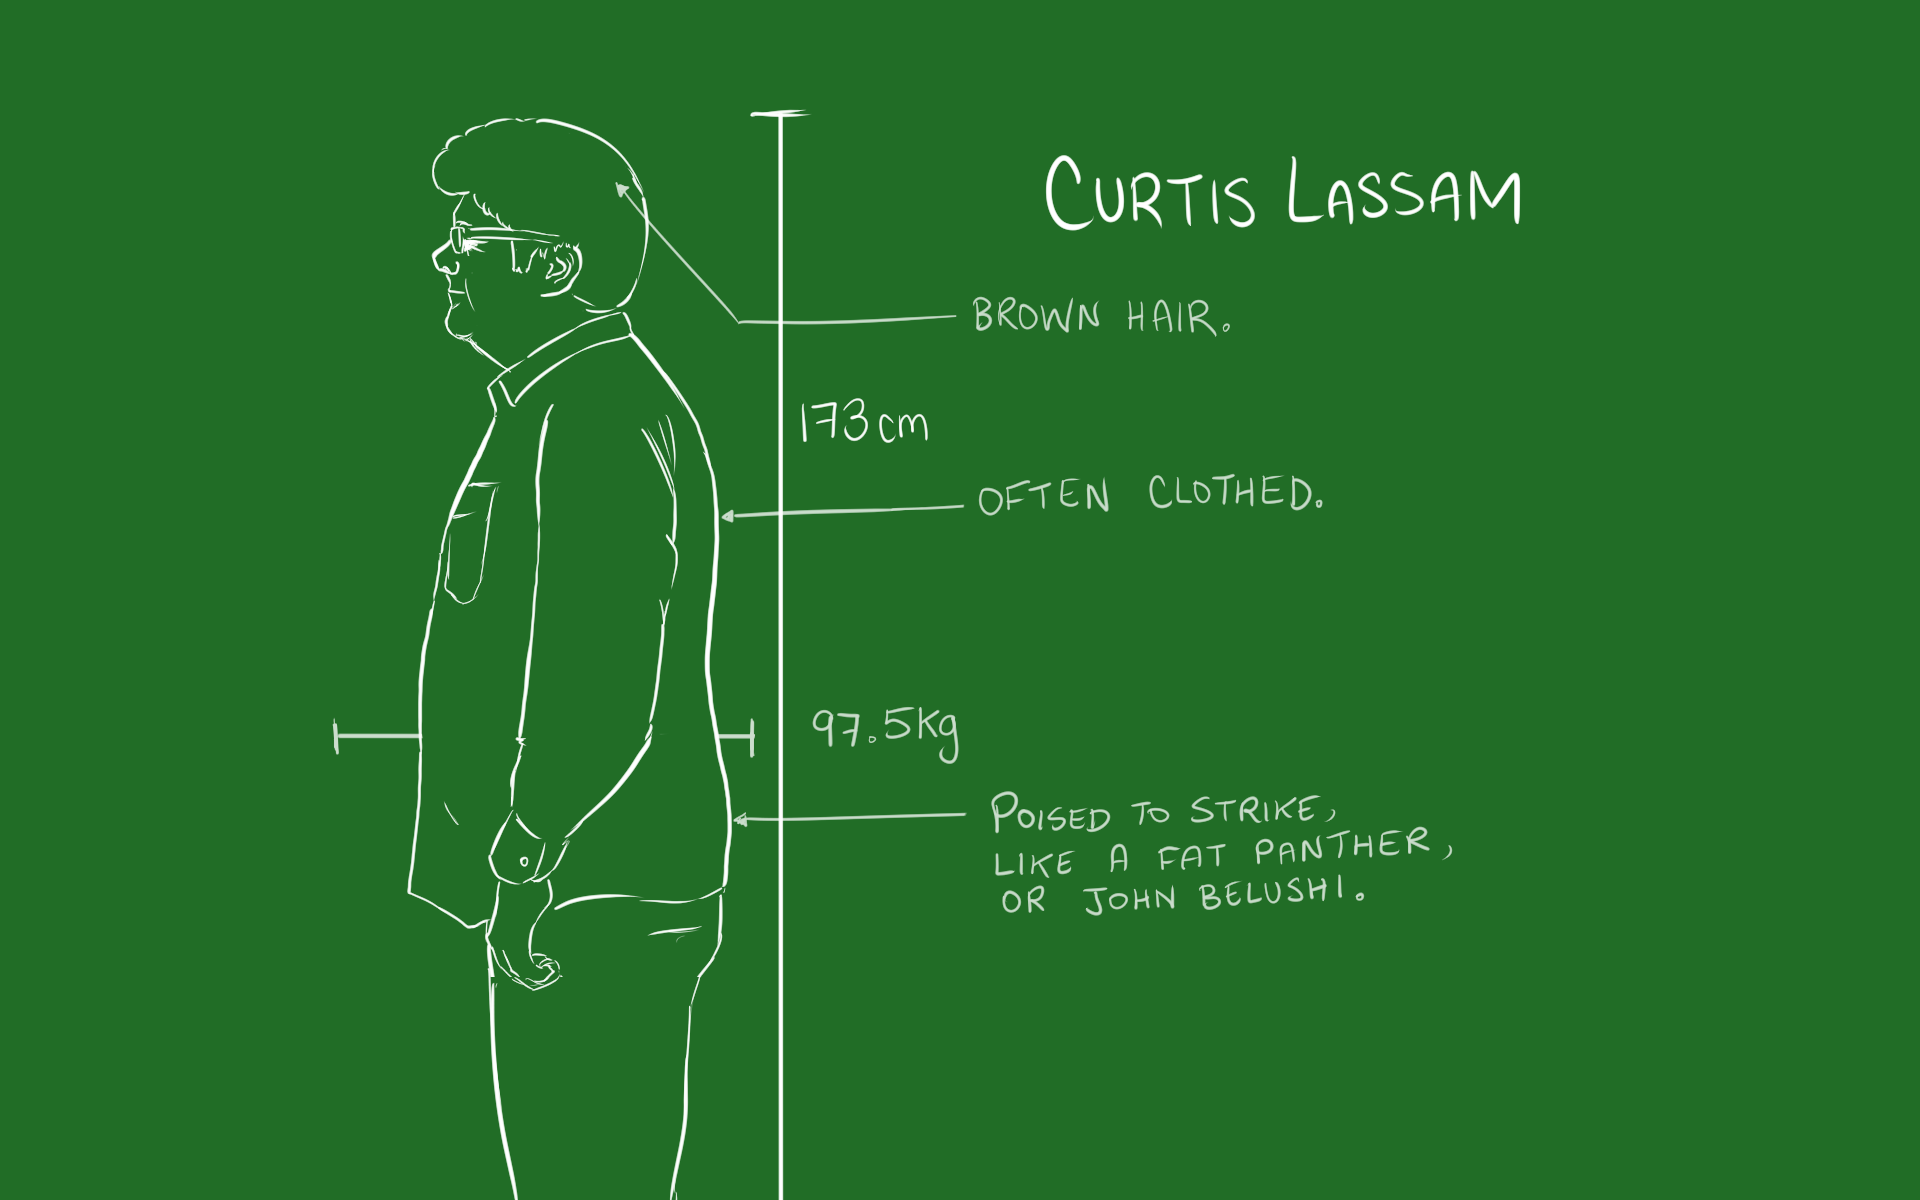 CURTIS LASSAM
BROWN HAIR.
173cm
OFTEN CLOTHED.
97.5Kg
POISED TO STRIKE,
LIKE A FAT PANTHER,
OR JOHN BELUSHI.